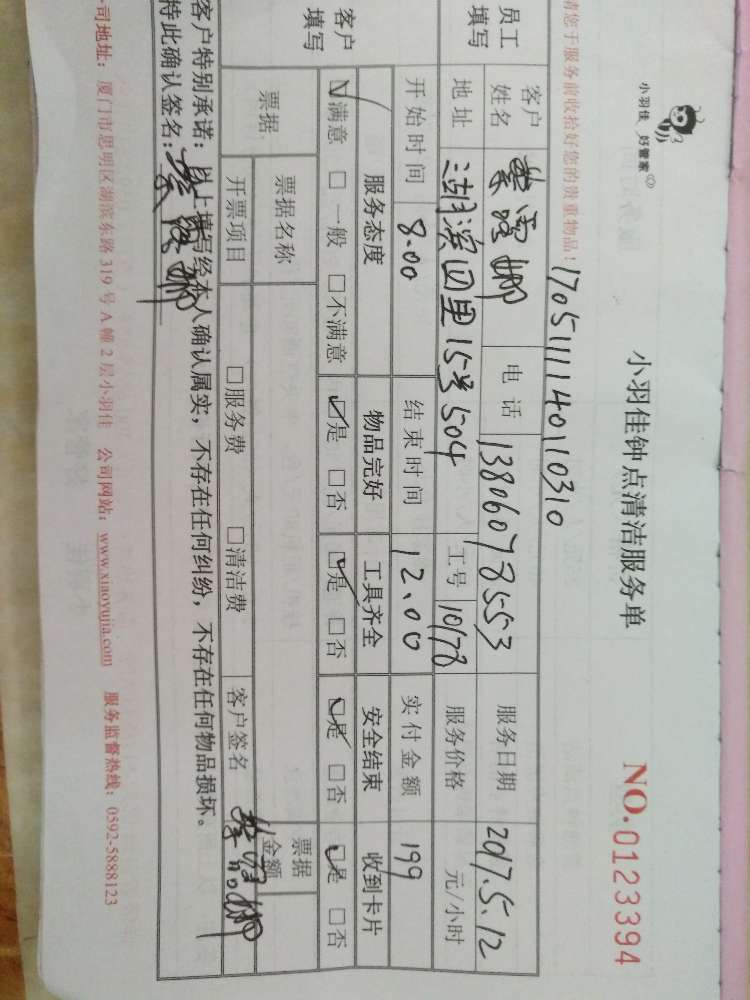 小羽佳 好管家
小羽佳钟点清洁服务单
NO.0123394
请您于服务前收拾好您的贵重物品!
17051111140110310
员工填写
客户姓名 电话 13806078553 服务日期 2017.5.12
地址 湖滨四里15号504 工号 10178 服务价格 元/小时
开始时间 8.00 结束时间 12.00 实付金额 199
客户填写
服务态度 物品完好 工具齐全 安全结束 收到卡片
☑满意 □一般 □不满意 ☑是 □否 ☑是 □否 ☑是 □否 ☑是 □否
票据 票据名称 票据金额
开票项目 □服务费 □清洁费 客户签名
客户特别承诺:以上填写经本人确认属实,不存在任何纠纷,不存在任何物品损坏。
特此确认签名:
司地址: 厦门市思明区湖滨东路319号A幢2层小羽佳 公司网站: www.xiaoyujia.com 服务监督热线: 0592-5888123